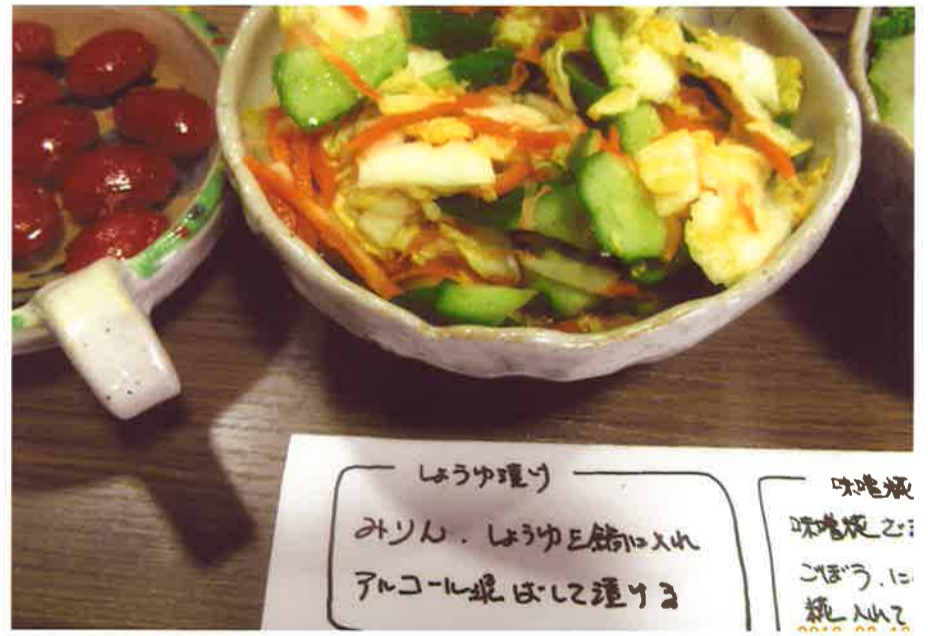 しょうゆ漬け
みりん.しょうゆを鍋に入れ
アルコール飛ばして漬ける
味噌糀
味噌糀で
ごぼう.に
糀入れて